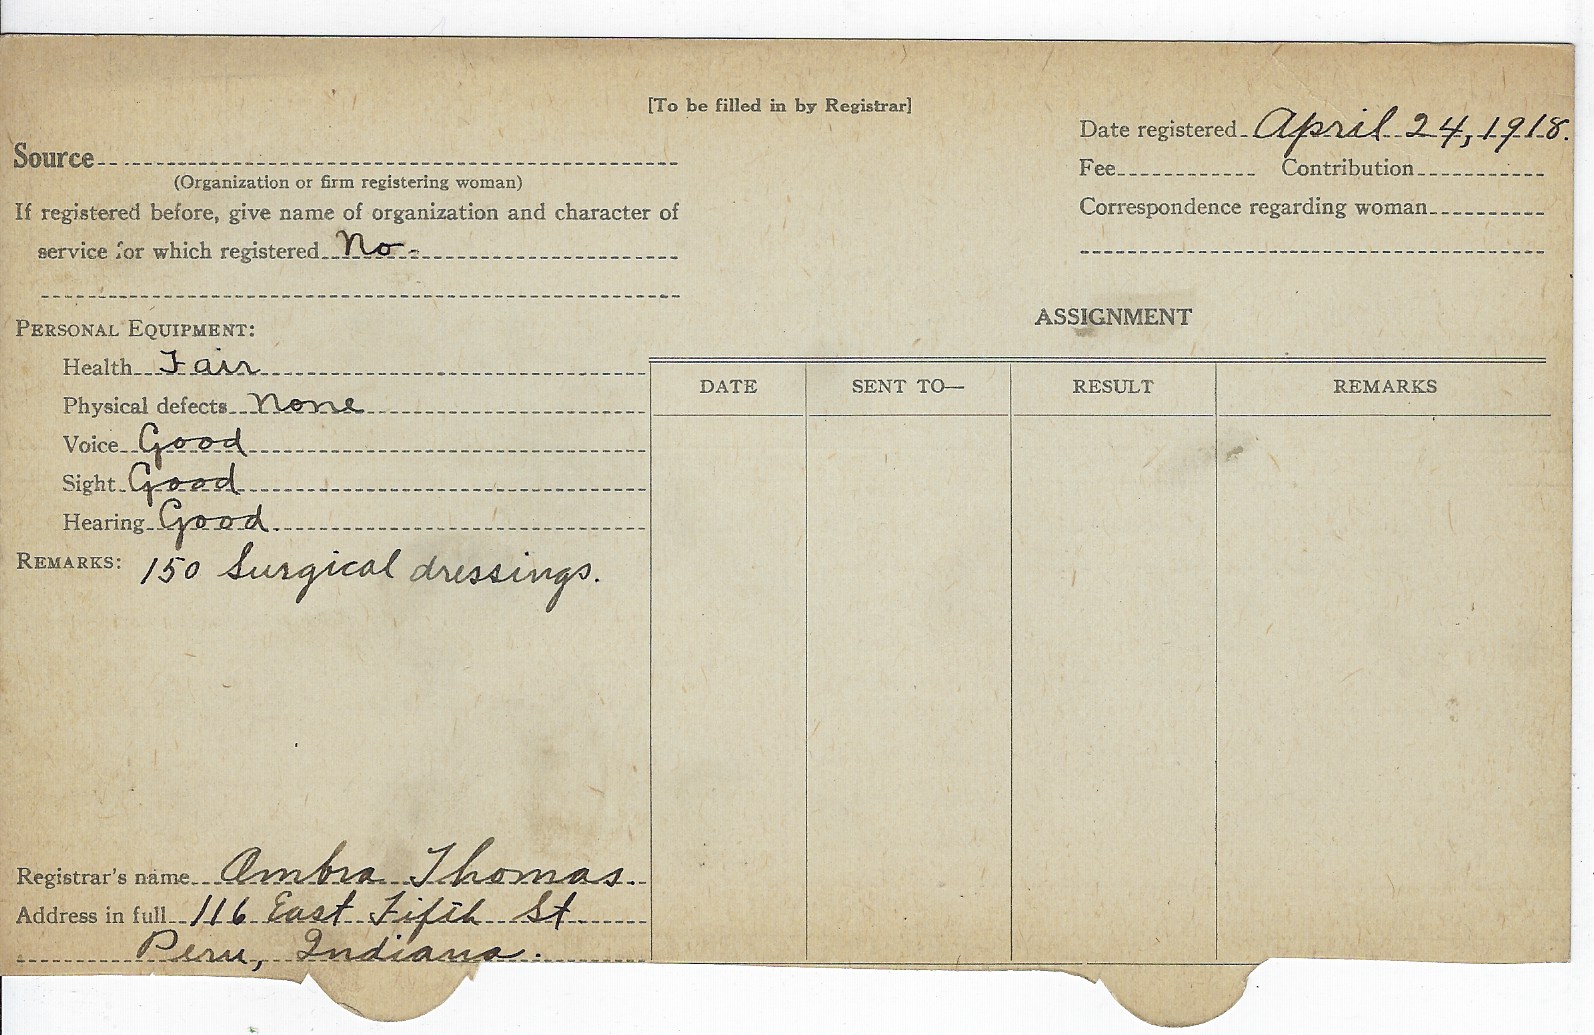 [To be filled in by Registrar]
Date registered April 24, 1918.
Source
(Organization or firm registering woman)
Fee Contribution
If registered before, give name of organization and character of
Correspondence regarding woman
service for which registered No.
PERSONAL EQUIPMENT:
Health Fair
Physical defects None
Voice Good
Sight Good
Hearing Good
REMARKS: 150 Surgical dressings.
Registrar's name Ombra Thomas
Address in full 116 East Fifth St
Peru, Indiana.
ASSIGNMENT
DATE SENT TO— RESULT REMARKS